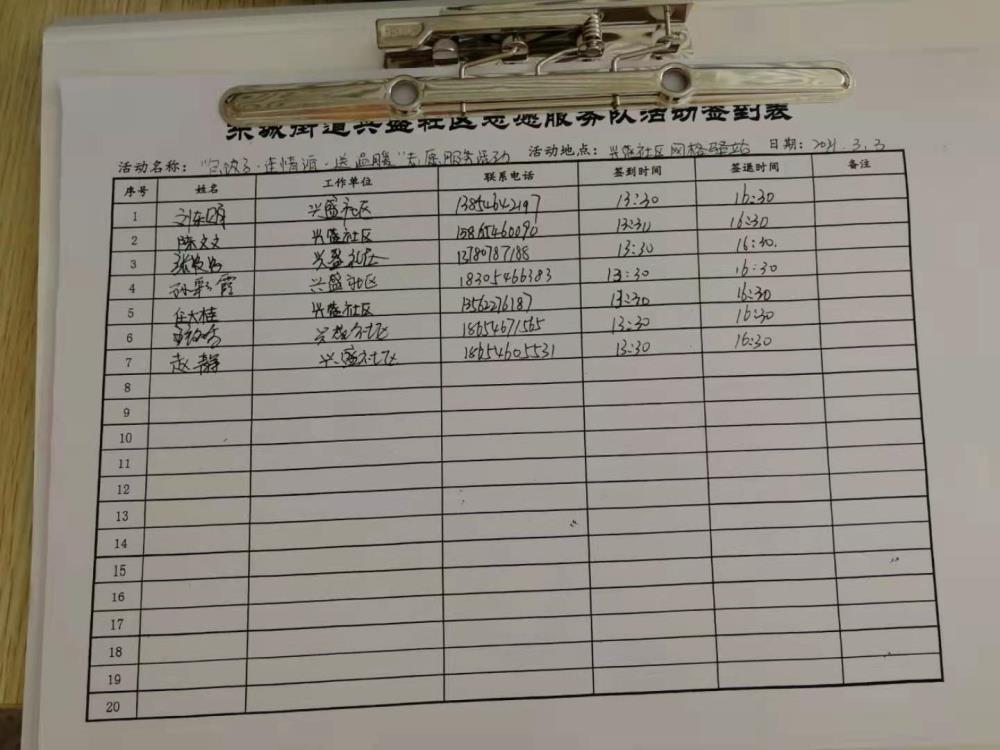 东城街道兴盛社区志愿服务队活动签到表
活动名称: "包饺子·连情谊·送温暖"志愿服务活动 活动地点: 兴盛社区网格驿站 日期: 2021.3.3
序号 姓名 工作单位 联系电话 签到时间 签退时间 备注
1 兴盛社区 13854642197 13:30 16:30
2 陈文文 兴盛社区 15865460090 13:30 16:30
3 兴盛社区 13780787188 13:30 16:30.
4 孙彩霞 兴盛社区 18305466383 13:30 16:30
5 任大桂 兴盛社区 13562276187 13:30 16:30
6 兴盛社区 18654671565 13:30 16:30
7 赵静 兴盛社区 18654605531 13:30 16:30
8
9
10
11
12
13
14
15
16
17
18
19
20